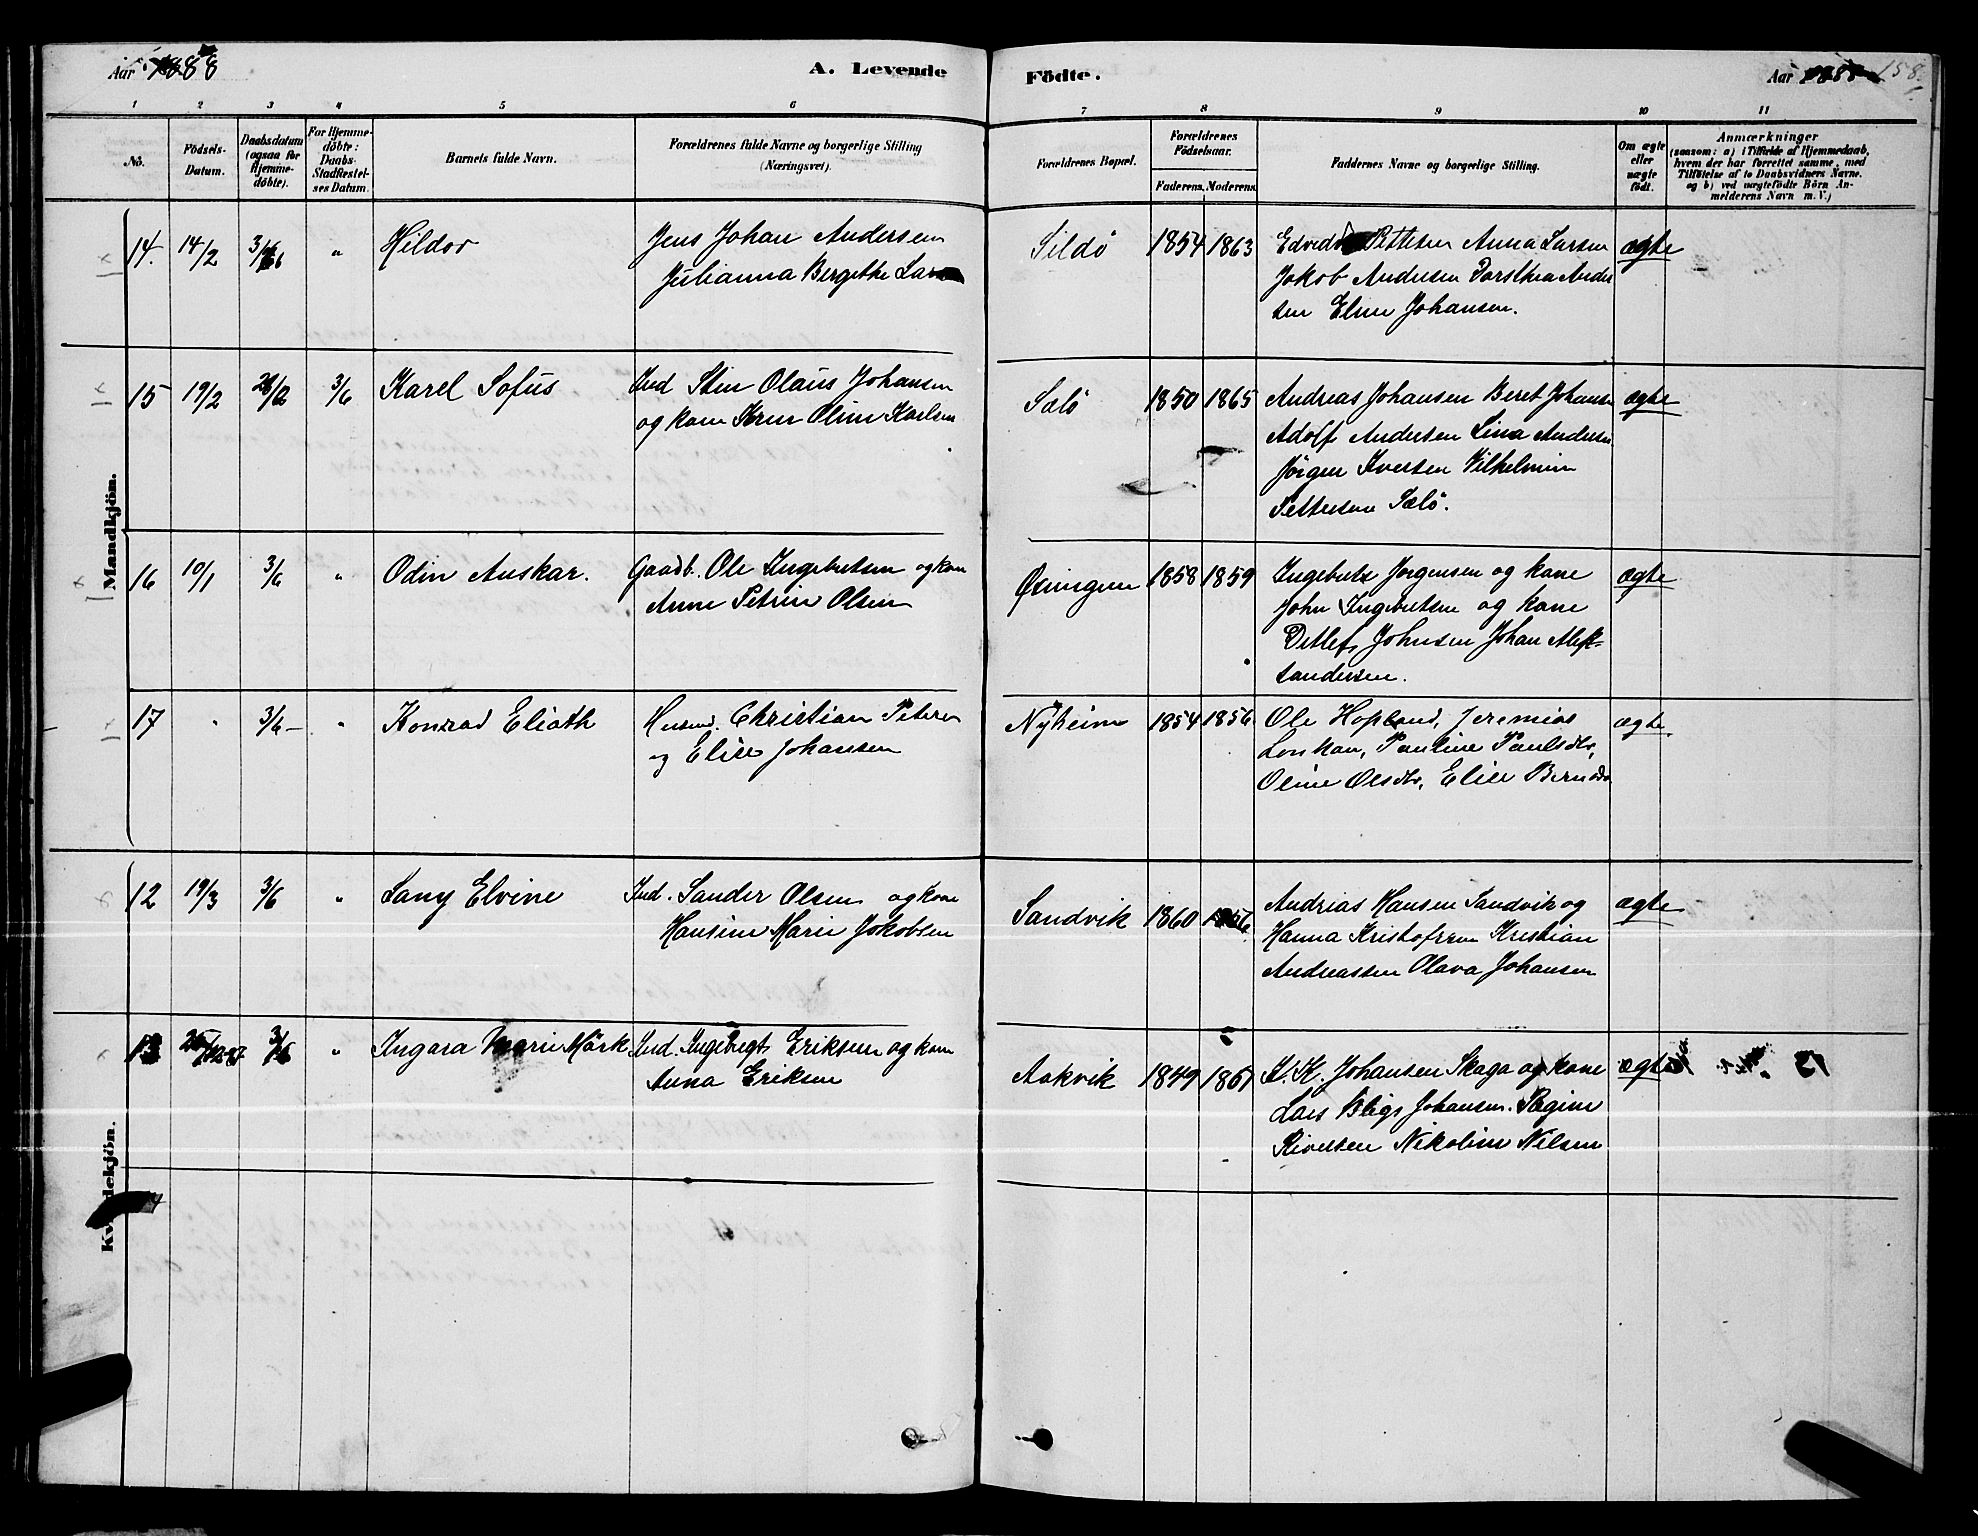 Aar 1888
A. Levende
Födte.
Aar 1888
158.
1 2 3 4 5 6 7 8 9 10 11
No.
Födsels-
Datum.
Daabsdatum
(ogsaa for
Hjemme-
döbte).
For Hjemme-
döbte:
Daabs-
Stadfæstel-
ses Datum.
Barnets fulde Navn.
Forældrenes fulde Navne og borgerlige Stilling
(Næringsvei).
Forældrenes Bopæl.
Forældrenes
Födselsaar.
Faderens. Moderens.
Faddernes Navne og borgerlige Stilling.
Om ægte
eller
uægte
født.
Anmærkninger
(saasom: a) i Tilfælde af Hjemmedaab,
hvem der har forrettet samme, med
Tilföielse af to Daabsvidners Navne,
og b) ved uægtefödte Börn An-
melderens Navn m. V.)
Mandkjön.
14. 14/2 3/6 " Hildor
Jens Johan Andersen
Julianna Bergithe
Sildö 1854 1863
Pettersen Anna Larsen
Jakob Andersen Dorthea Ander
sen Eline Johansen.
ægte
15 19/2 26/2 3/6 Karel Sofus
Ind Sten Olaus Johansen
og kone Oline Karlsen
Sælö 1850 1865
Andreas Johansen Beret Johansen
Adolf Andersen Lina Andersen
Jörgen Iversen Vilhelmine
Pettersen Sælö.
ægte
16 10/1 3/6 " Odin Anskar.
Gaadb. Ole Ingebretsen og kone
Anne Petrine Olsen
Øsingen 1858 1859
Jorgensen og kone
John Ingebretsen og kone
Detlef Johnsen Johan Alek-
sandersen.
ægte
17 " 3/6 " Konrad Eliath
Christian Peters
og Elise Johansen
Nyheim 1854 1856
Ole Hopland, Jeremias
Pauline Paulsdtr,
Oline Olsdtr, Elise Berntsd
ægte
Kvindekjön.
12 19/3 3/6 " Lany Elvine
Ind. Sander Olsen og kone
Hansine Marie Jakobsen
Sandvik 1860
Andrias Hansen Sandvik og
Hanna Kristofersen Kristian
Andreassen Olava Johansen
ægte
13 3/6 " Ingara Marie Mörk
Ind. Ingebrigt Eriksen og kone
Anna Eriksen
Aakvik 1849 1861
K. K. Johansen Skaga og kone
Lars Johansen. Regine
Nikoline Nilsen
ægte
13